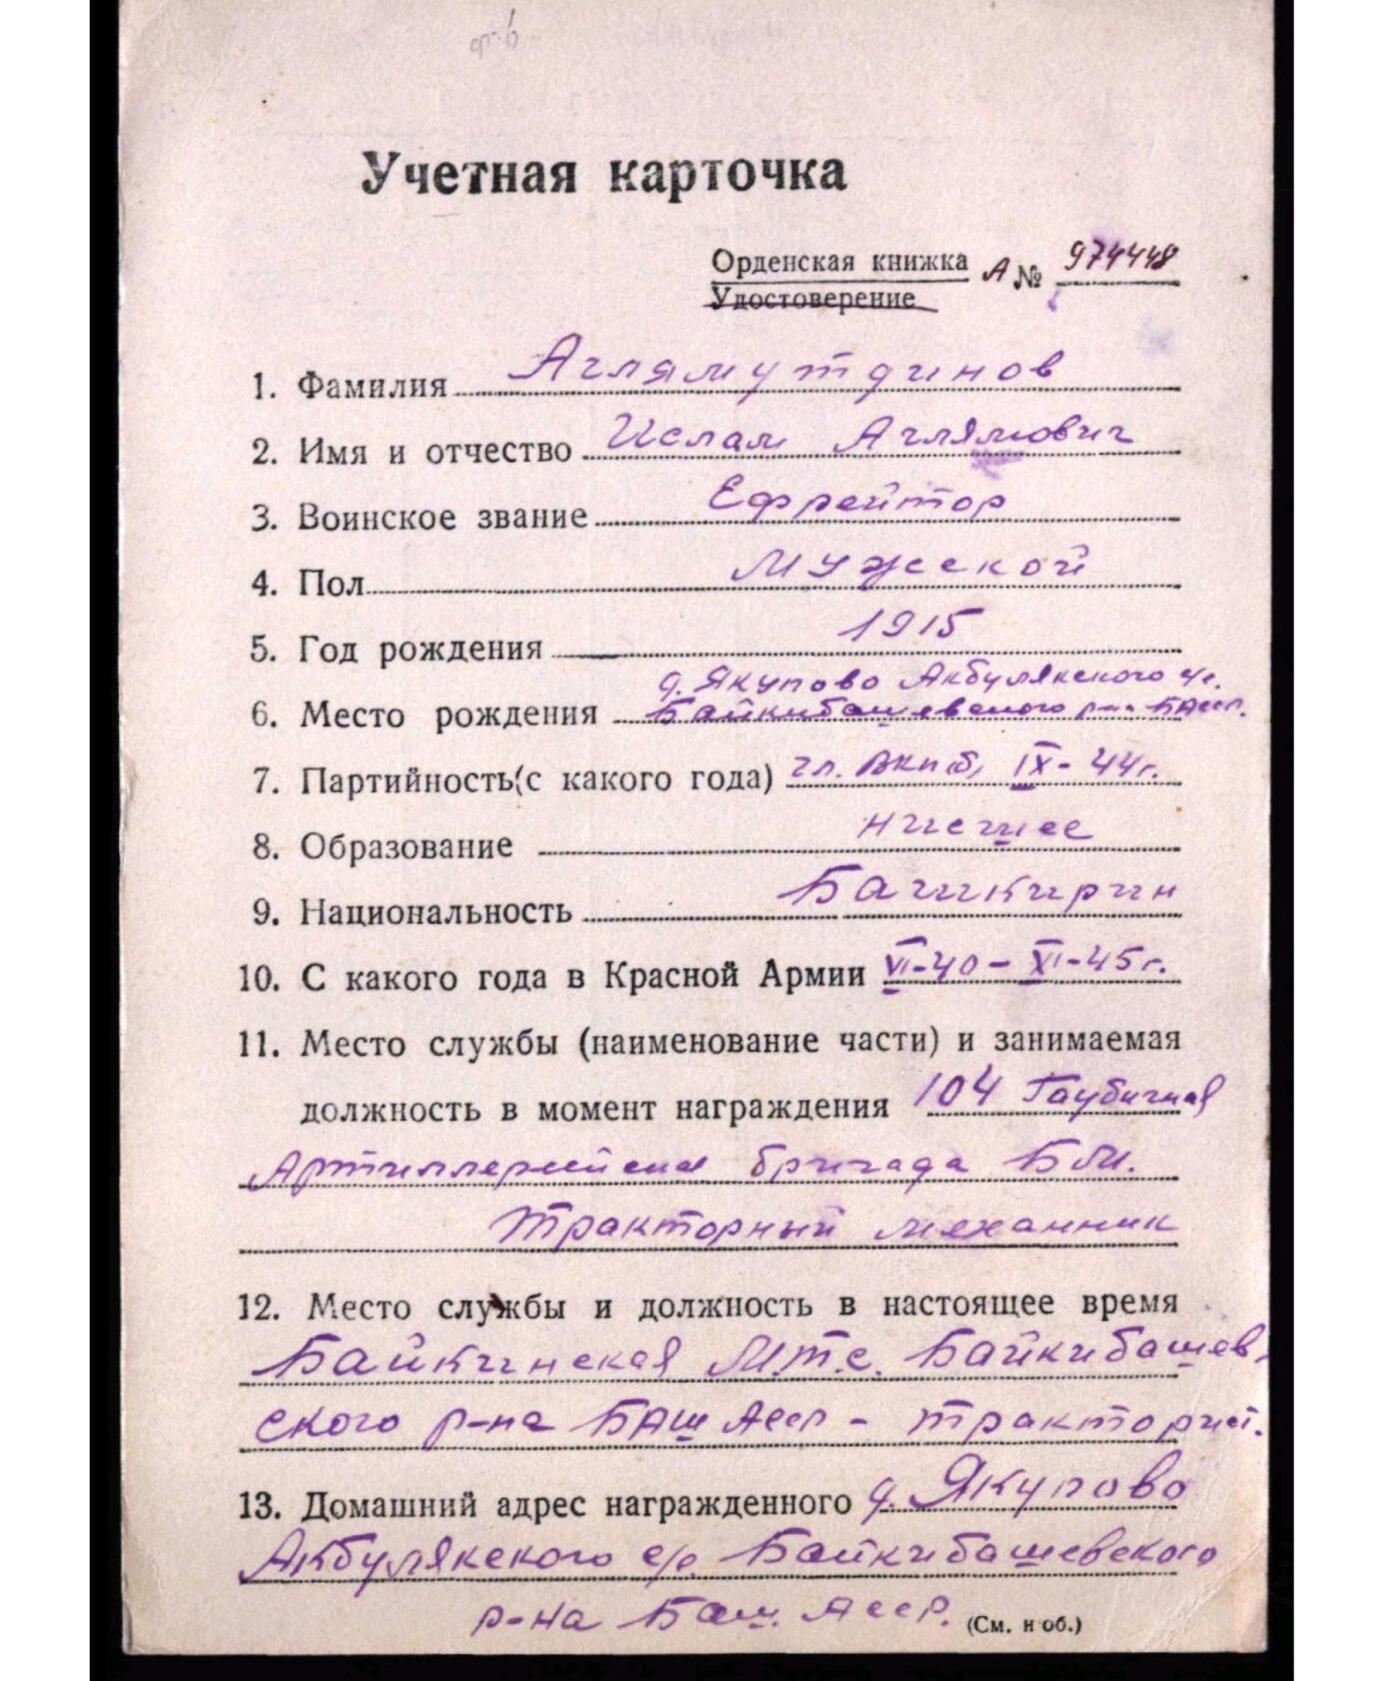 Учетная карточка
Орденская книжка А № 974448
Удостоверение
1. Фамилия Аглямутдинов
2. Имя и отчество Ислам Аглямович
3. Воинское звание Ефрейтор
4. Пол Мужской
5. Год рождения 1915
д. Якупово Акбулякского с/с.
6. Место рождения Байкибашевского р-на БАССР.
7. Партийность (с какого года) чл. ВКП(б) IX-44г.
8. Образование низшее
9. Национальность Башкирин
10. С какого года в Красной Армии VI-40 - XI-45г.
11. Место службы (наименование части) и занимаемая
должность в момент награждения 104 Гаубичная
Артиллерийская бригада БМ.
Тракторный механик
12. Место службы и должность в настоящее время
Байкинская М.Т.С. Байкибашев-
ского р-на БАШ АССР - тракторист.
13. Домашний адрес награжденного д. Якупово
Акбулякского с/с. Байкибашевского
р-на Баш. АССР. (См. н об.)